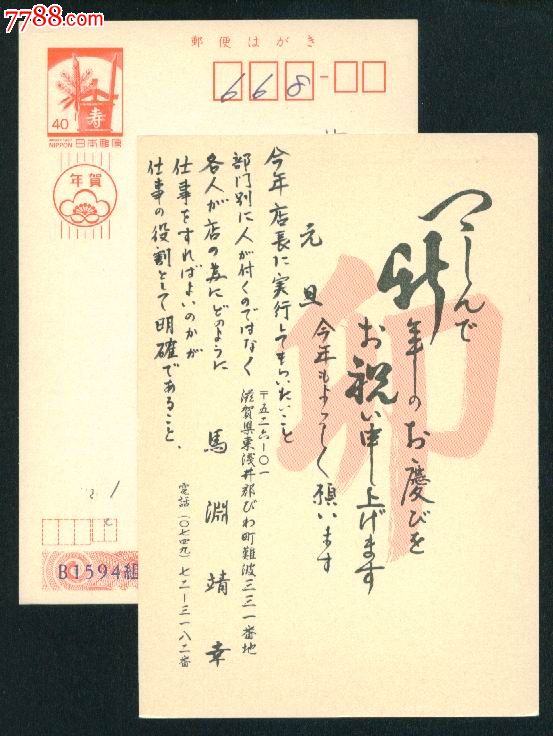 7788.com
郵便はがき
668-
40
寿
NIPPON 日本郵便
年賀
B1594組
卯
つつしんで
新年のお慶びを
お祝い申し上げます
元旦
今年もよろしく願います
今年店長に実行してもらいたいこと
部門別に人が付くのではなく
各人が店の為にどのように
仕事をすればよいのかが
仕事の役割として明確であること、
〒五二六-〇一
滋賀県東浅井郡びわ町難波三三一番地
馬淵靖幸
電話(〇七四九)七二-三一八二番